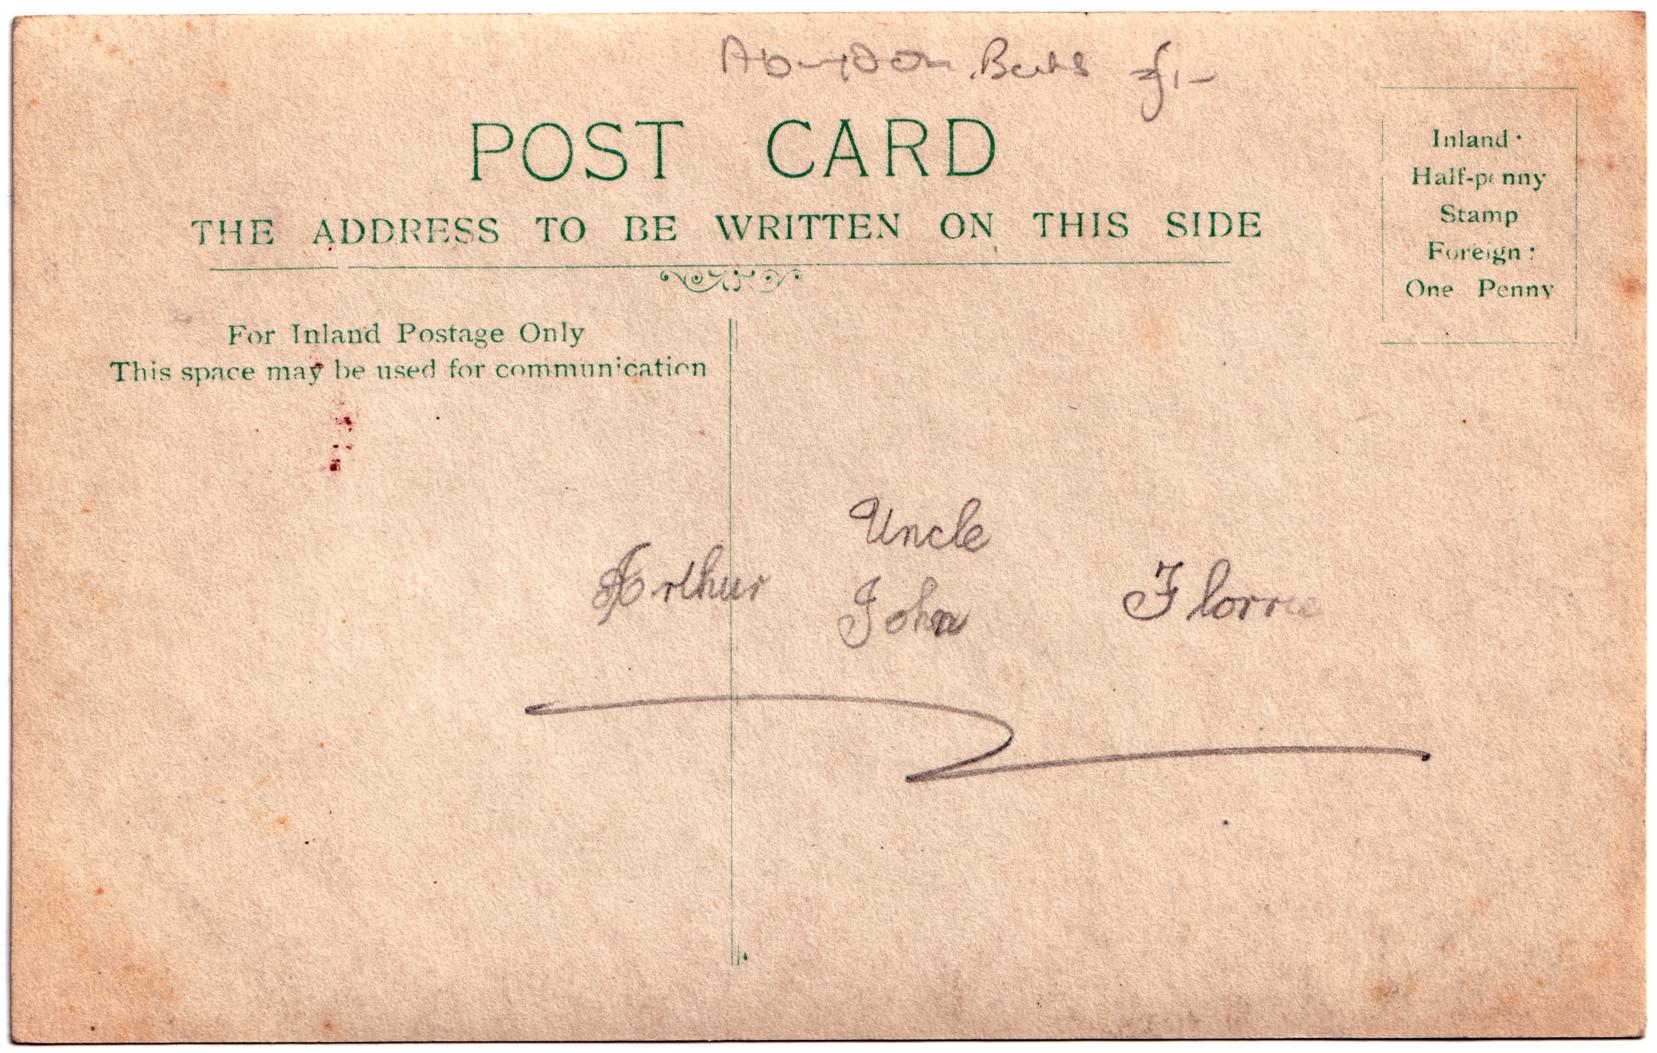 Abingdon Berks £1-
POST CARD
THE ADDRESS TO BE WRITTEN ON THIS SIDE
Inland ·
Half-penny
Stamp
Foreign :
One Penny
For Inland Postage Only
This space may be used for communication
Uncle
Arthur John Florrie